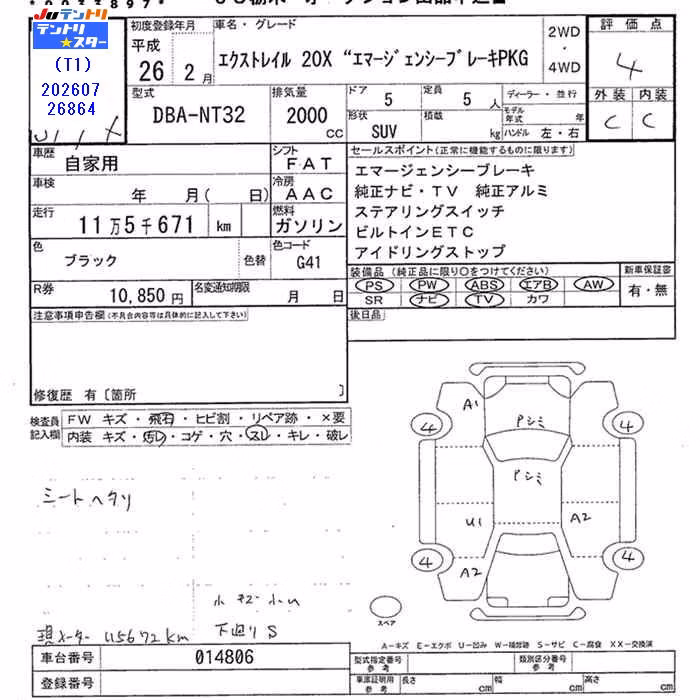 テントリ
テントリ★スター
(T1)
202607
26864
初度登録年月
平成
26 2月
車名・グレード
エクストレイル 20X “エマージェンシーブレーキPKG
2WD
・
4WD
評価点
4
型式
DBA-NT32
排気量
2000
cc
ドア
5
定員
5 人
形状
SUV
積載
kg
ディーラー・並行
モデル年式 年
ハンドル 左・右
外装 内装
C C
車歴
自家用
シフト
FAT
車検
年 月( 日)
冷房
AAC
走行
11万5千671 km
燃料
ガソリン
色
ブラック
色替
色コード
G41
R券
10,850円
名変通知期限
月 日
セールスポイント(正常に機能するものに限ります)
エマージェンシーブレーキ
純正ナビ・TV 純正アルミ
ステアリングスイッチ
ビルトインETC
アイドリングストップ
装備品(純正品に限り○をつけてください)
PS PW ABS エアB AW
SR ナビ TV カワ
新車保証書
有・無
後日品
注意事項申告欄(不具合内容等は具体的に記入して下さい)
修復歴 有〔箇所 〕
検査員記入欄
FW キズ・飛石・ヒビ割・リペア跡・×要
内装 キズ・汚レ・コゲ・穴・スレ・キレ・破レ
シートヘタリ
下廻りS
現メーター 115672km
A1
Pシミ
4
4
Pシミ
U1
A2
A2
4
4
スペア
A-キズ E-エクボ U-凹み W-補修跡 S-サビ C-腐食 XX-交換済
車台番号
014806
登録番号
型式指定番号
参考
類別区分番号
参考
車庫証明用
参考
長さ cm
幅 cm
高さ cm